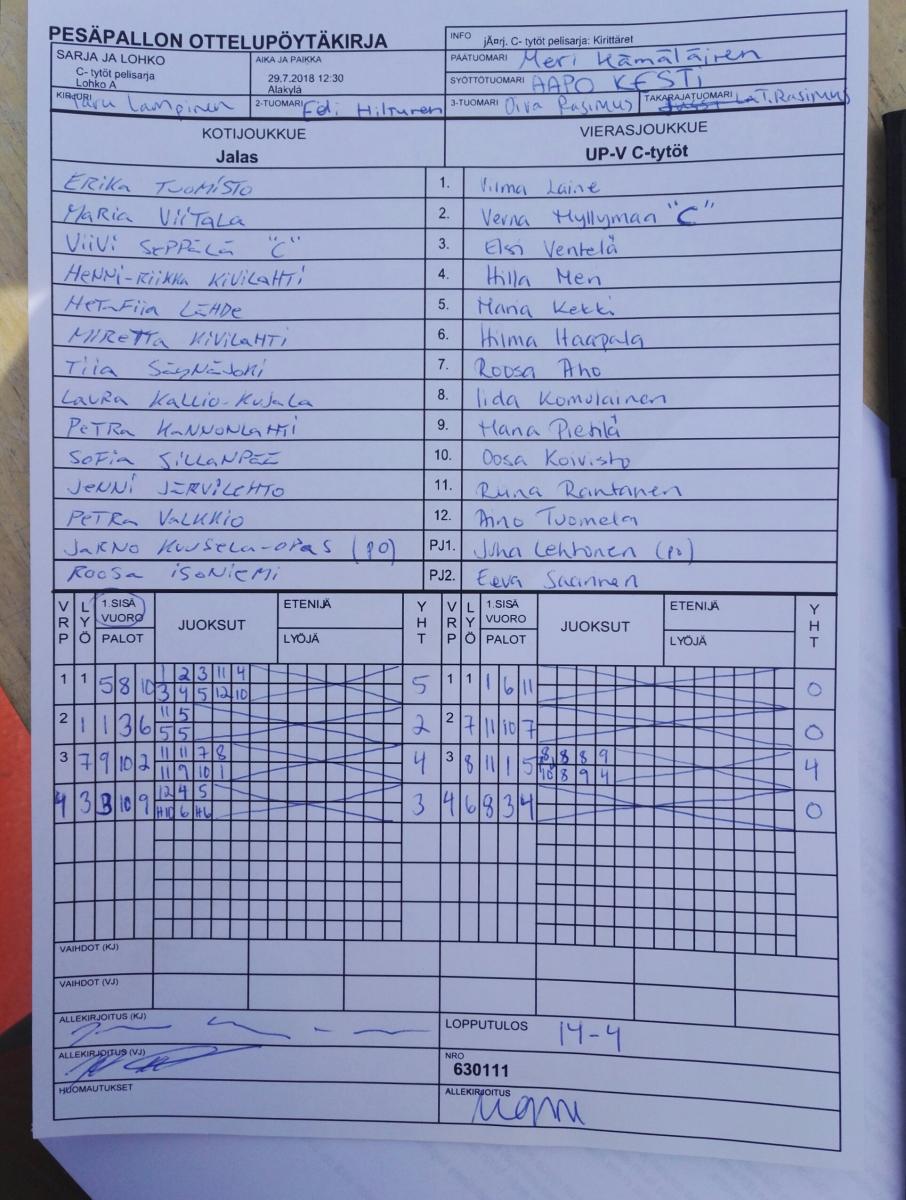 PESÄPALLON OTTELUPÖYTÄKIRJA
INFO jÄ¤rj. C- tytöt pelisarja: Kirittäret
SARJA JA LOHKO
C- tytöt pelisarja
Lohko A
AIKA JA PAIKKA
29.7.2018 12:30
Alakylä
PÄÄTUOMARI Meri Hämäläinen
SYÖTTÖTUOMARI AAPO KESTI
KIRJURI Taru Lampinen
2-TUOMARI Edi Hilturen
3-TUOMARI Oiva Rasimus
TAKARAJATUOMARI La T. Rasimus
KOTIJOUKKUE
Jalas
VIERASJOUKKUE
UP-V C-tytöt
ERIKA TUOMISTO 1. Vilma Laine
MARIA VIITALA 2. Verna Myllyman "C"
VIIVI SEPPÄLÄ "C" 3. Elsi Ventelä
HENNI-RIIKKA KIVILAHTI 4. Hilla Meri
HETA-FIIA LÄHDE 5. Maria Kekki
MIRETTA KIVILAHTI 6. Hilma Haapala
TIIA SÄYNÄJOKI 7. Roosa Aho
LAURA KALLIO-KUJALA 8. Iida Komulainen
PETRA KANNONLAHTI 9. Hana Pietilä
SOFIA SILLANPÄÄ 10. Oosa Koivisto
JENNI JÄRVILEHTO 11. Riina Rantanen
PETRA VALKKIO 12. Aino Tuomela
JARNO KUUSELA-OPAS (PO) PJ1. Juha Lehtonen (po)
ROOSA ISONIEMI PJ2. Eeva Saarinen
VRP LYÖ 1.SISÄ VUORO PALOT JUOKSUT ETENIJÄ LYÖJÄ YHT VRP LYÖ 1.SISÄ VUORO PALOT JUOKSUT ETENIJÄ LYÖJÄ YHT
1 1 5 8 10 1 2 3 11 4 5 1 1 1 6 11 0
3 4 5 12 10
2 1 1 3 6 11 5 2 2 7 11 10 7 0
5 5
3 7 9 10 2 11 11 7 8 4 3 8 11 1 5 8 8 8 9 4
11 9 10 1 10 8 9 4
4 3 3 10 9 12 4 5 3 4 6 8 3 4 0
H10 6 H6
VAIHDOT (KJ)
VAIHDOT (VJ)
ALLEKIRJOITUS (KJ)
LOPPUTULOS 14-4
ALLEKIRJOITUS (VJ)
NRO
630111
HUOMAUTUKSET
ALLEKIRJOITUS